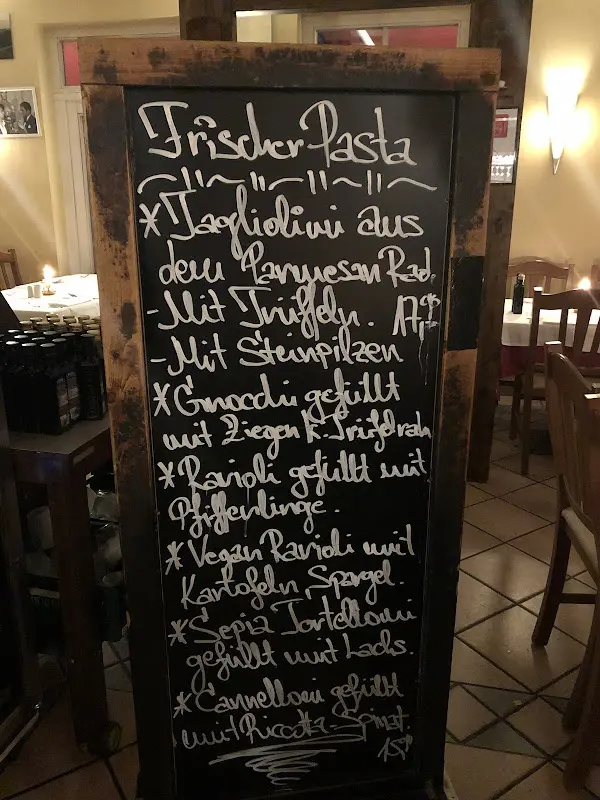 Frischer Pasta
*Tagliolini aus
dem Parmesan Rad.
-Mit Trüffeln. 17,95
-Mit Steinpilzen
*Gnocchi gefüllt
mit Ziegen k. Trüfelrah
*Ravioli gefüllt mit
Pfifferlinge.
*Vegan Ravioli mit
Kartofeln, Spargel.
*Sepia Tortelloni
gefüllt mit Lachs.
*Cannelloni gefüllt
mit Riccotta-Spinat.